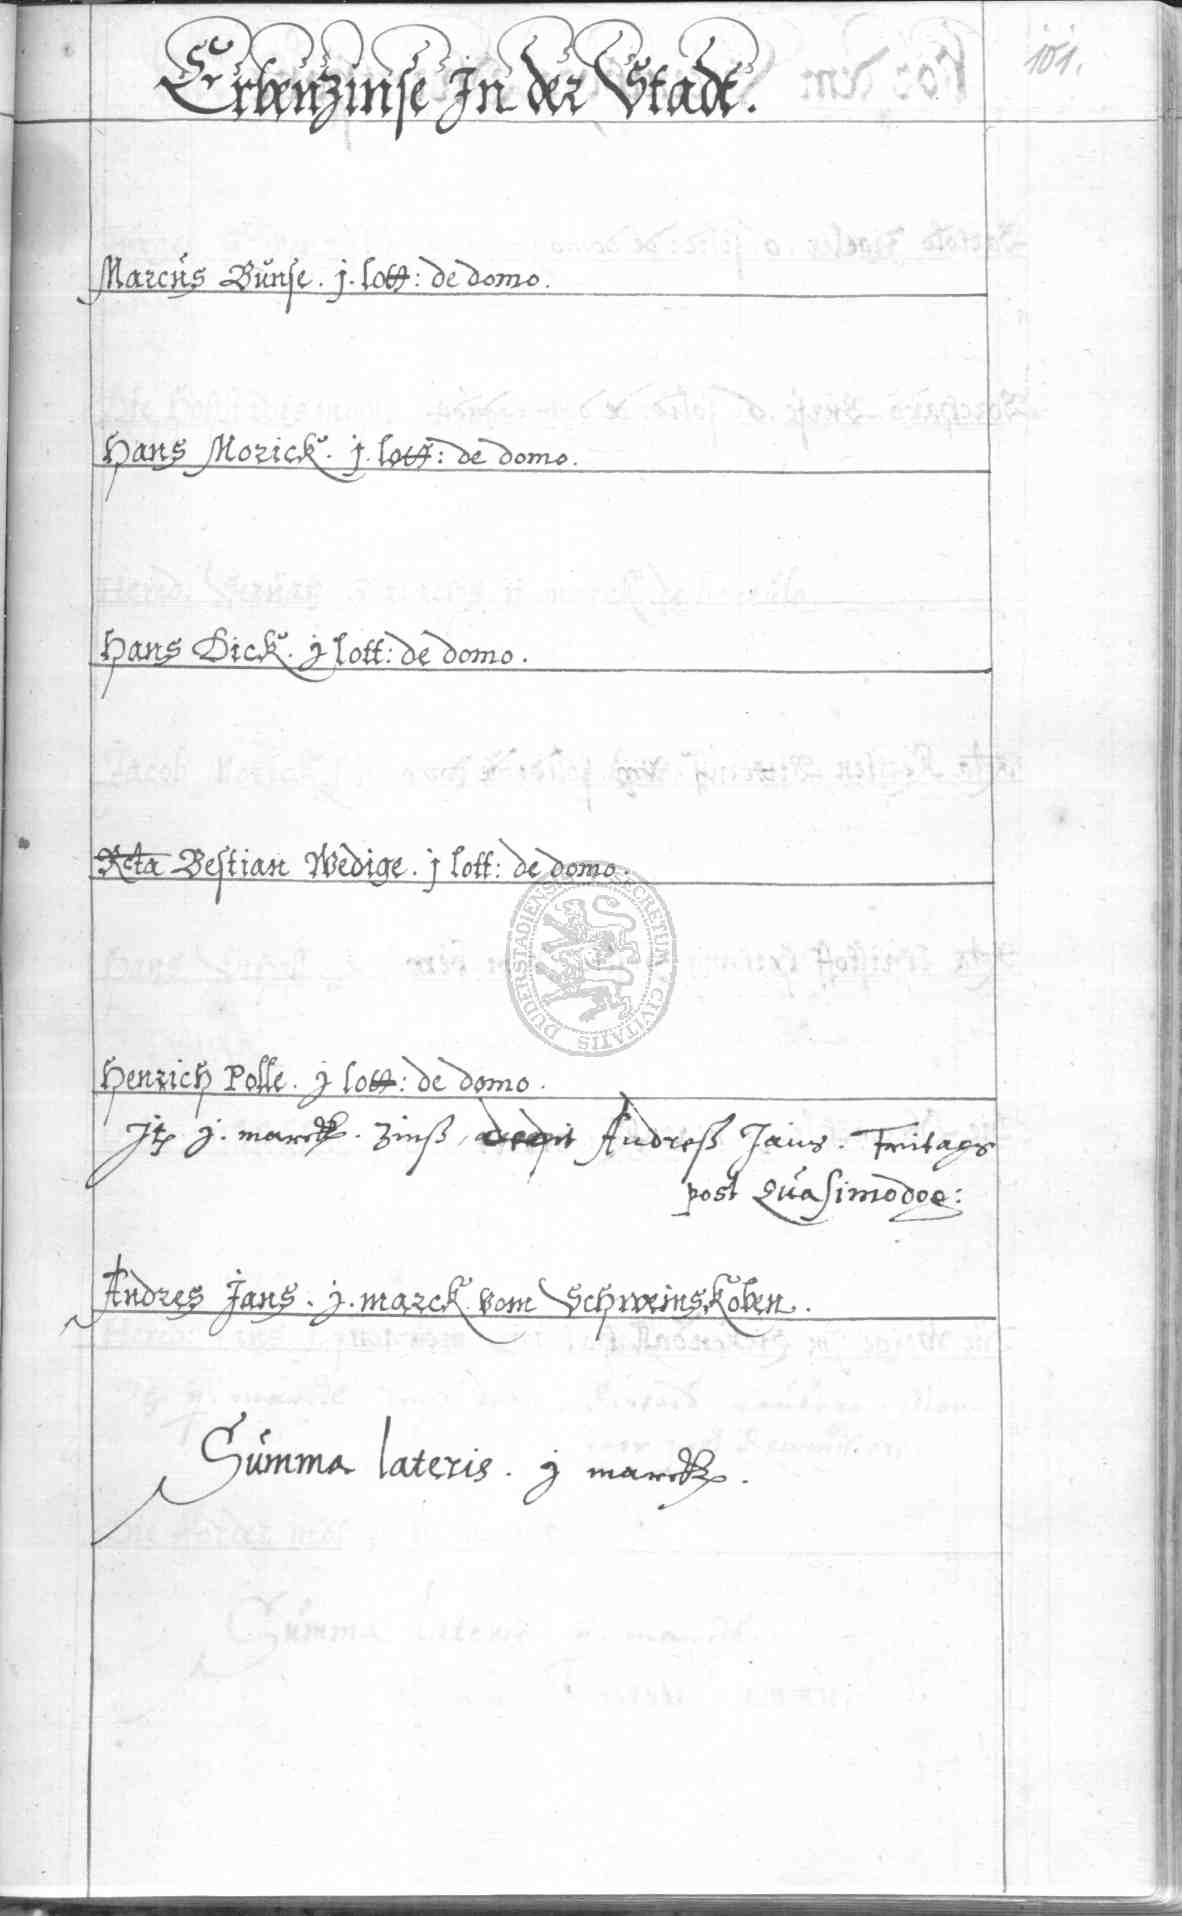 101.
Erbenzinse In der Stadt.
Marcus Bunse . j . lott : de domo .
Hans Morick . j . lott : de domo .
Hans Dick . j lott : de domo .
Rcta Bestian Wedige . j lott : de domo .
DUDERSTADIENSIS SECRETUM CIVITATIS
Henrich Polle . j lott : de domo .
Jtem j . marck . zinß , dedit Andreß Jans . Freitags
post Quasimodog :
Andres Jans . j . marck vom Schweinskoben .
Summa lateris . j marck .